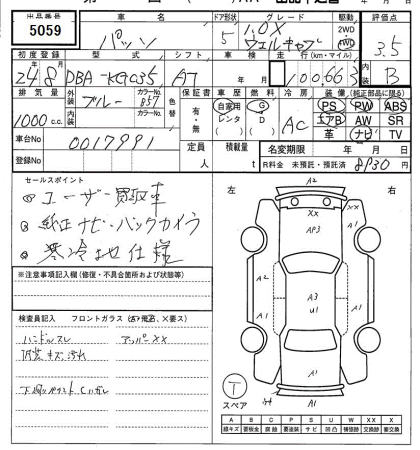 出品番号 車名 ドア形状 グレード 駆動 評価点
5059 パッソ 5 1.0X 2WD 4WD 3.5
初度登録 型式 シフト 車検 走行(km・マイル) 内装
24 8 DBA-KGC35 AT 年 月 100663 B
排気量 外装 ブルー カラーNo. B57 色替 保証書 車歴 燃料 冷房 装備(純正部品に限る)
1000 c.c. 内装 カラーNo. 有・無 自家用 レンタ G D AC PS PW ABS
エアB AW SR
革 ナビ TV
車台No 0017991 定員 人 積載量 t 名変期限 年 月 日
登録No R料金 未預託・預託済 8930
セールスポイント
① ユーザー買取車
② 純正ナビ・バックカメラ
③ 寒冷地仕様
※注意事項記入欄(修復・不具合箇所および状態等)
検査員記入 フロントガラス
ハンドルスレ アッパーXX
内装キズ汚れ
左 右
A2
XX
XX
A1
AP3
A2
A3
U1
A1
A1
A1
T
スペア
A B C P S U W XX X
線キズ 要板金 腐蝕 要塗装 サビ 凹 補修跡 交換跡 要交換